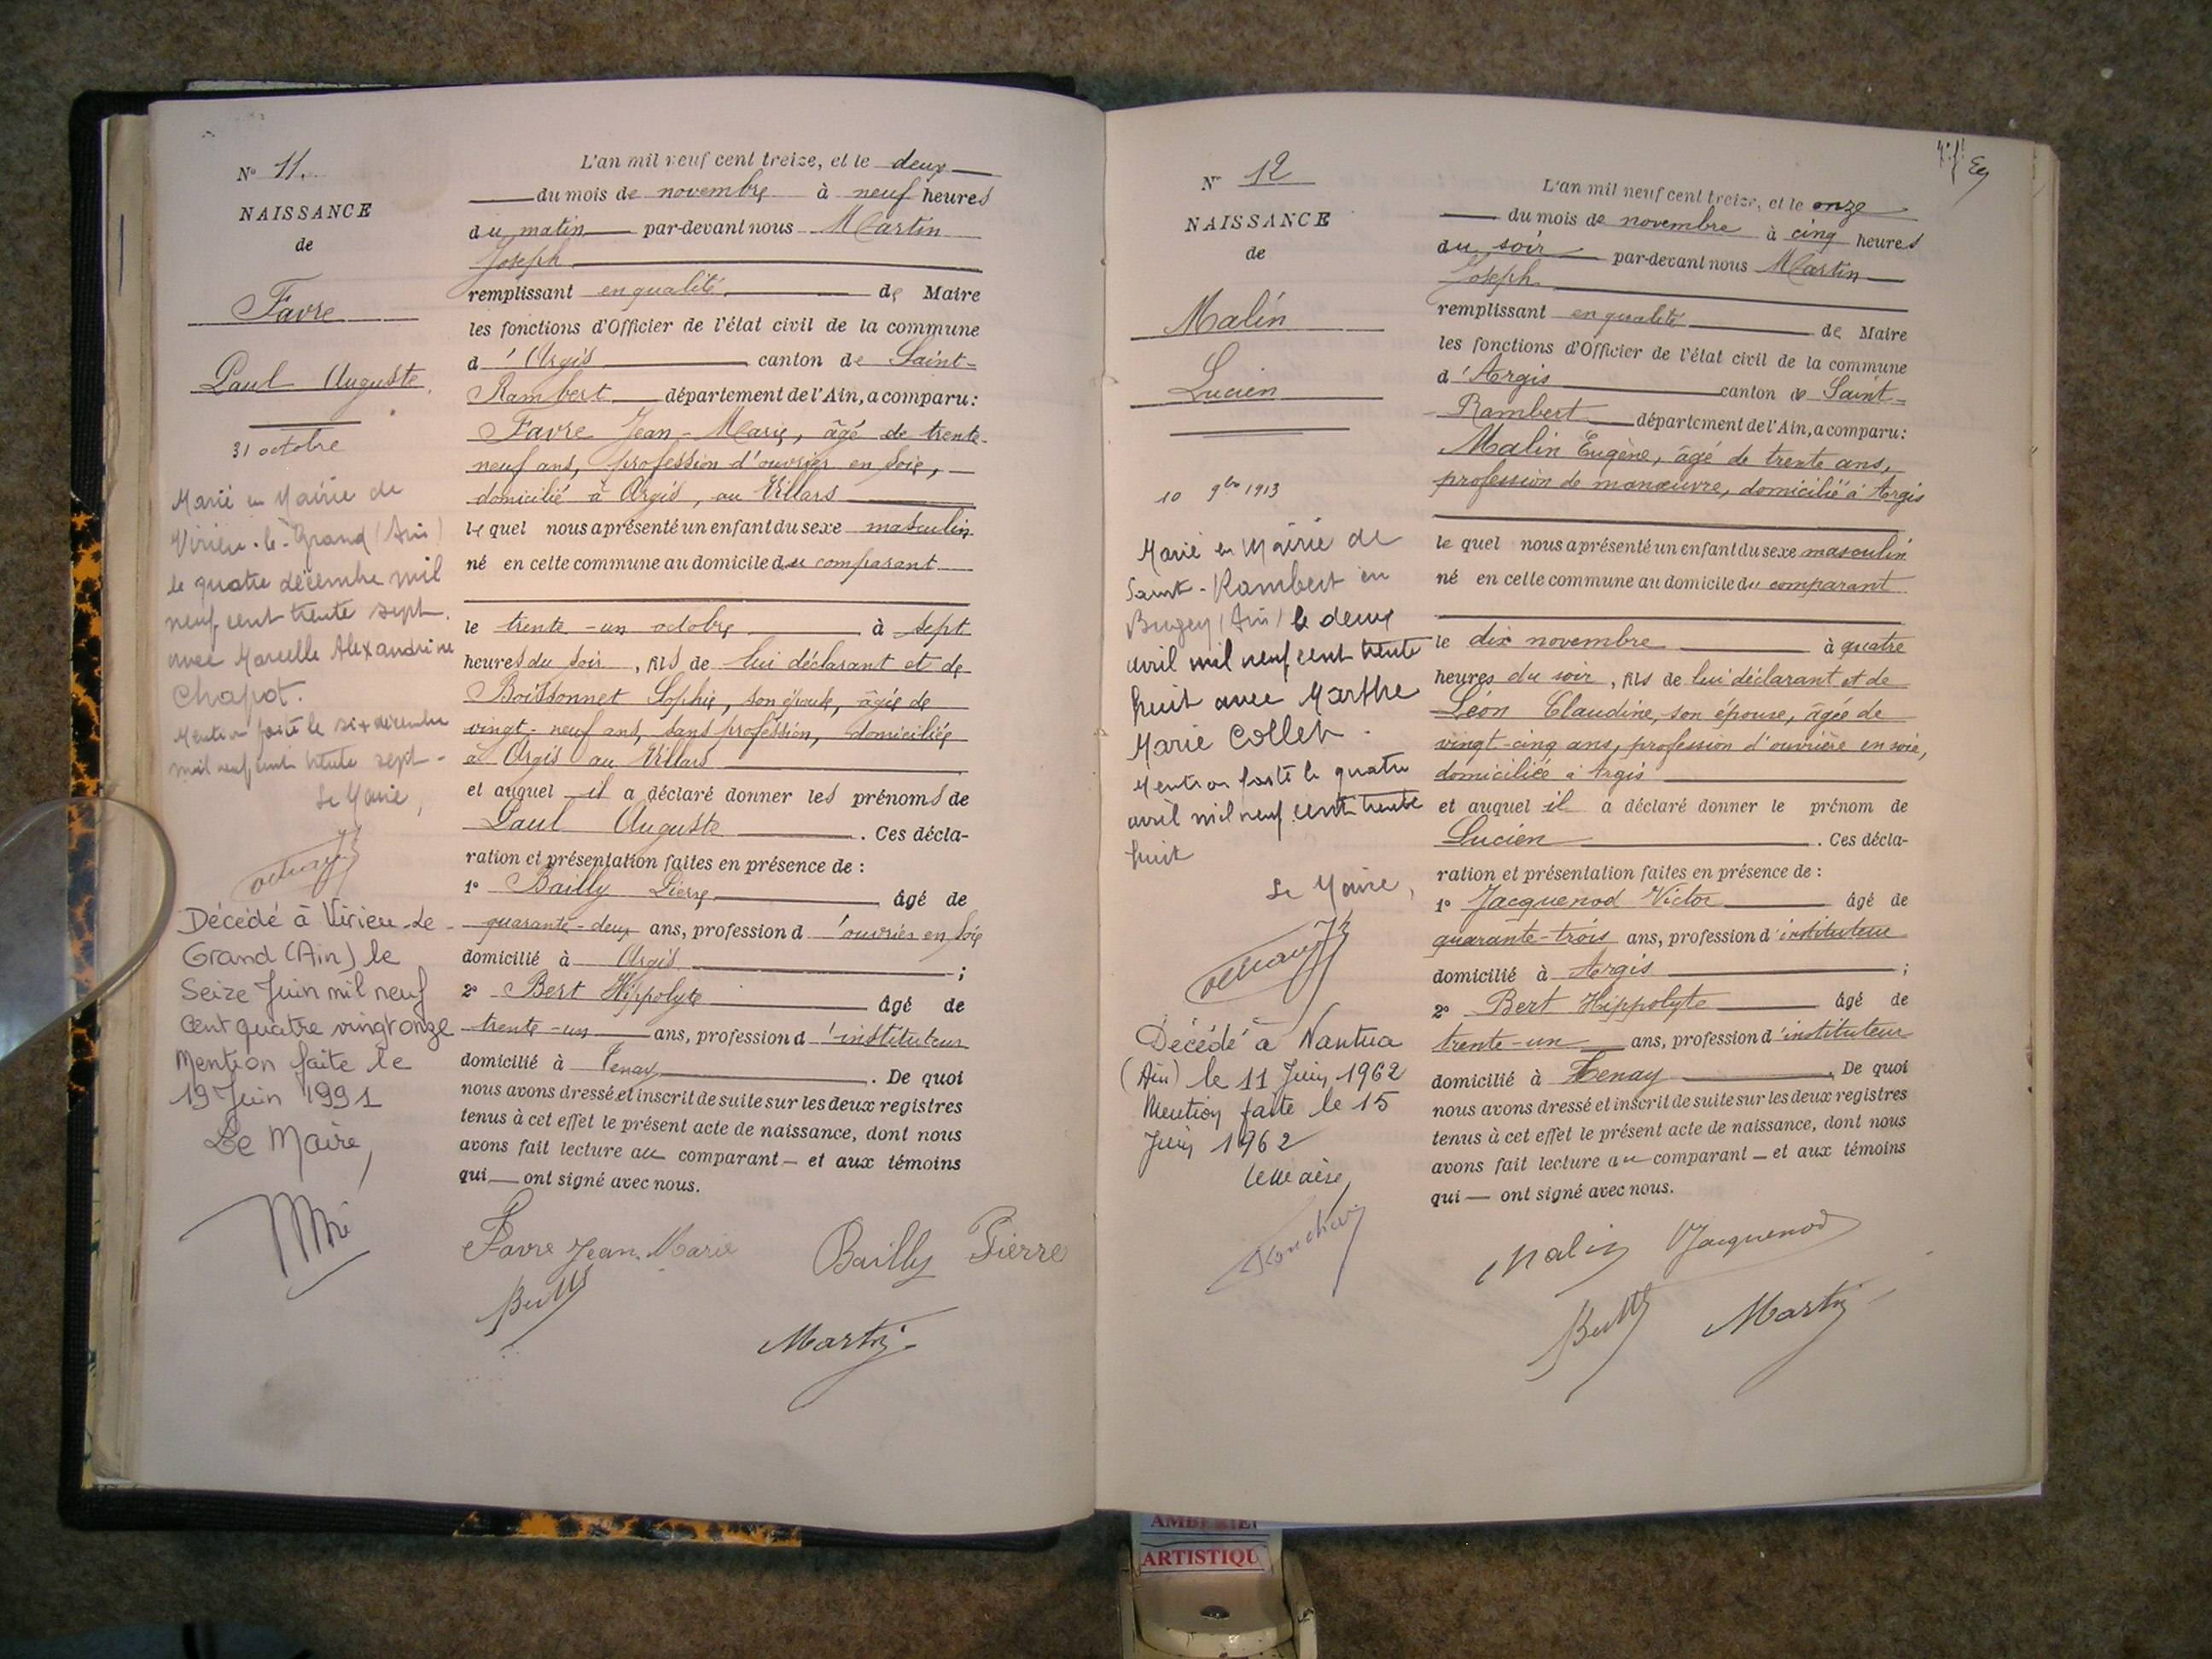 N° 11.
NAISSANCE
de
Favre
Paul Auguste
31 octobre
Marié en Mairie de
Virieu-le-Grand (Ain)
le quatre décembre mil
neuf cent trente sept
avec Marcelle Alexandrine
Chapot.
Mention faite le six décembre
mil neuf cent trente sept -
Le Maire,
Décédé à Virieu-Le-
Grand (Ain) le
Seize Juin mil neuf
cent quatre vingt onze
Mention faite le
19 Juin 1991
Le Maire,
L'an mil neuf cent treize, et le deux
du mois de novembre à neuf heures
du matin par-devant nous Martin
Joseph
remplissant en qualité de Maire
les fonctions d'Officier de l'état civil de la commune
d'Argis canton de Saint-
Rambert département de l'Ain, a comparu:
Favre Jean-Marie, âgé de trente-
neuf ans, profession d'ouvrier en soie,
domicilié à Argis, au Villars
lequel nous a présenté un enfant du sexe masculin
né en cette commune au domicile du comparant
le trente-un octobre à sept
heures du soir, fils de lui déclarant et de
Boissonnet Sophie, son épouse, âgée de
vingt-neuf ans, sans profession, domiciliée
à Argis au Villars
et auquel il a déclaré donner les prénoms de
Paul Auguste. Ces décla-
ration et présentation faites en présence de :
1° Bailly Pierre âgé de
quarante-deux ans, profession d'ouvrier en soie
domicilié à Argis ;
2° Bert Hippolyte âgé de
trente-un ans, profession d'instituteur
domicilié à Tenay. De quoi
nous avons dressé et inscrit de suite sur les deux registres
tenus à cet effet le présent acte de naissance, dont nous
avons fait lecture au comparant et aux témoins
qui ont signé avec nous.
Favre Jean-Marie Bailly Pierre
Bert
Martin
N° 12
NAISSANCE
de
Malin
Lucien
10 9bre 1913
Marié en Mairie de
Saint-Rambert en
Bugey (Ain) le deux
avril mil neuf cent trente
huit avec Marthe
Marie Collet.
Mention faite le quatre
avril mil neuf cent trente
huit
Le Maire,
Décédé à Nantua
(Ain) le 11 Juin 1962
Mention faite le 15
Juin 1962
Le Maire,
L'an mil neuf cent treize, et le onze
du mois de novembre à cinq heures
du soir par-devant nous Martin
Joseph
remplissant en qualité de Maire
les fonctions d'Officier de l'état civil de la commune
d'Argis canton de Saint-
Rambert département de l'Ain, a comparu:
Malin Eugène, âgé de trente ans,
profession de manœuvre, domicilié à Argis
lequel nous a présenté un enfant du sexe masculin
né en cette commune au domicile du comparant
le dix novembre à quatre
heures du soir, fils de lui déclarant et de
Léon Claudine, son épouse, âgée de
vingt-cinq ans, profession d'ouvrière en soie,
domiciliée à Argis
et auquel il a déclaré donner le prénom de
Lucien. Ces décla-
ration et présentation faites en présence de :
1° Jacquenod Victor âgé de
quarante-trois ans, profession d'instituteur
domicilié à Argis ;
2° Bert Hippolyte âgé de
trente-un ans, profession d'instituteur
domicilié à Tenay. De quoi
nous avons dressé et inscrit de suite sur les deux registres
tenus à cet effet le présent acte de naissance, dont nous
avons fait lecture au comparant et aux témoins
qui ont signé avec nous.
Malin Jacquenod
Bert Martin
ARTISTIQU